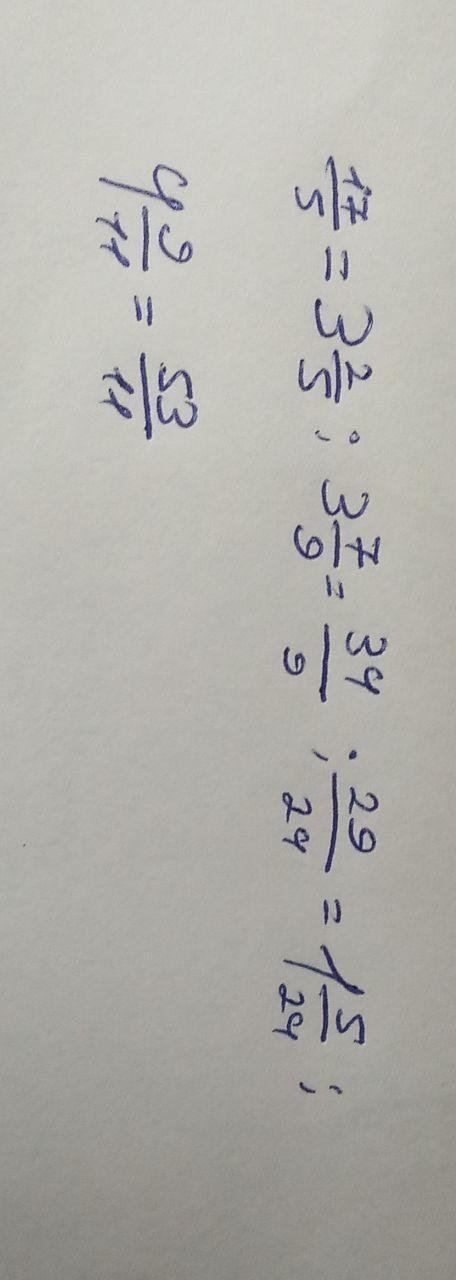 17/5 = 3 2/5 ; 3 7/9 = 34/9 ; 29/24 = 1 5/24 ;
4 9/11 = 53/11